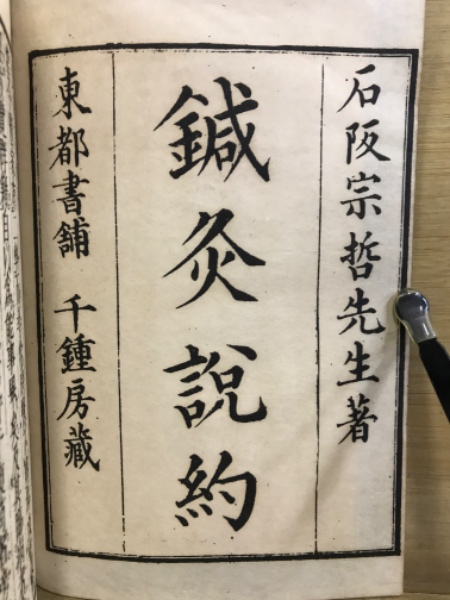 石阪宗哲先生著
鍼灸說約
東都書舗 千鍾房藏